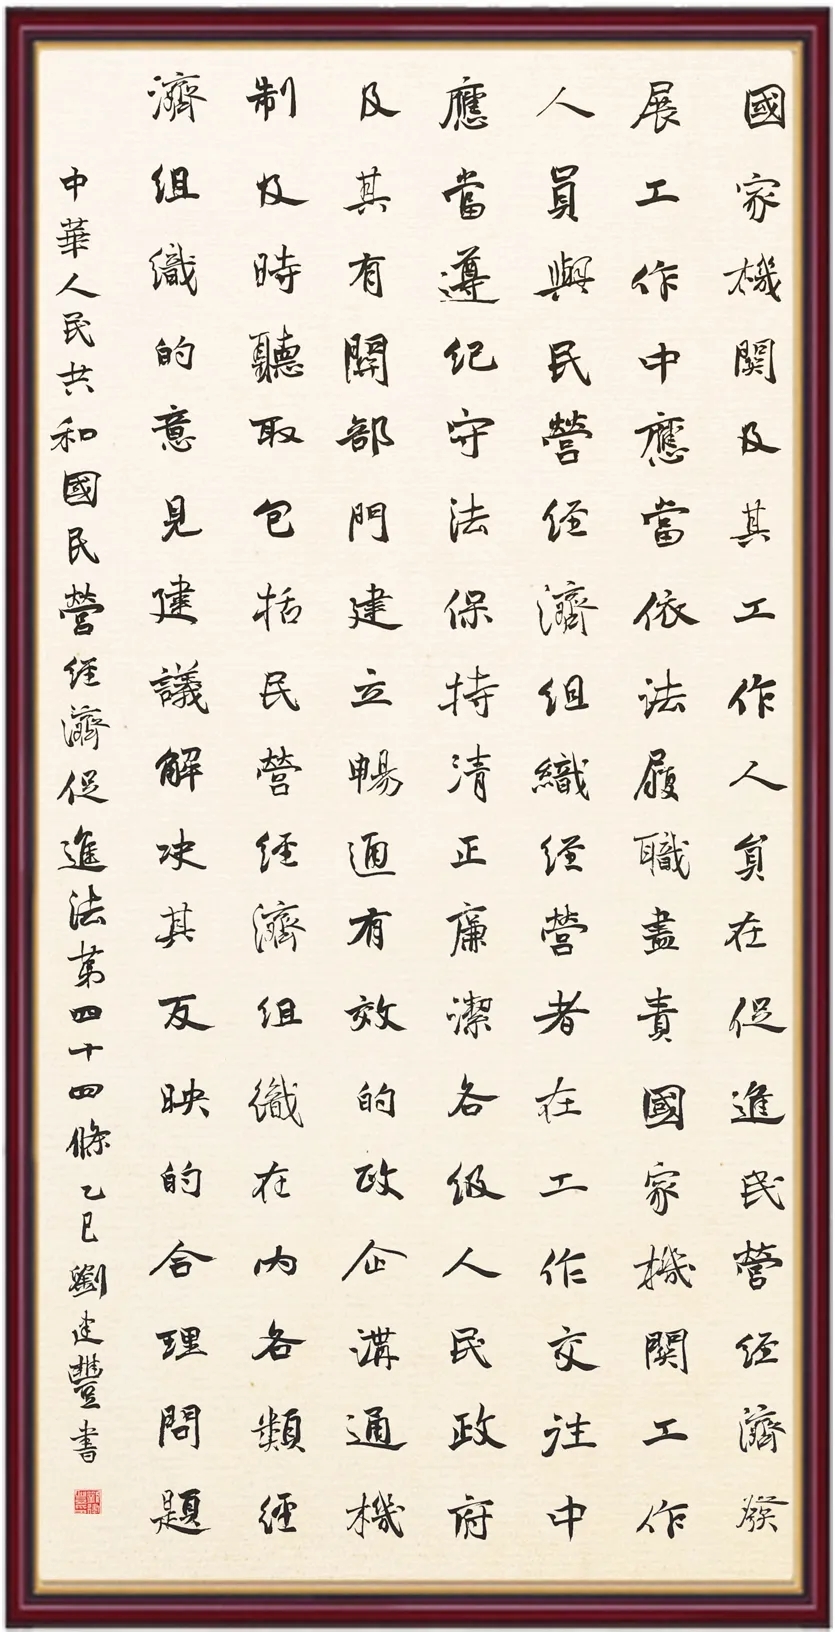 國家機關及其工作人員在促進民營经濟發
展工作中應當依法履職盡責國家機關工作
人員與民營经濟组織经營者在工作交往中
應當遵纪守法保持清正廉潔各级人民政府
及其有關部門建立暢通有效的政企溝通機
制及時聽取包括民營经濟组織在内各類经
濟组織的意見建議解决其反映的合理問題
中華人民共和國民營经濟促進法第四十四條乙巳劉建豐書